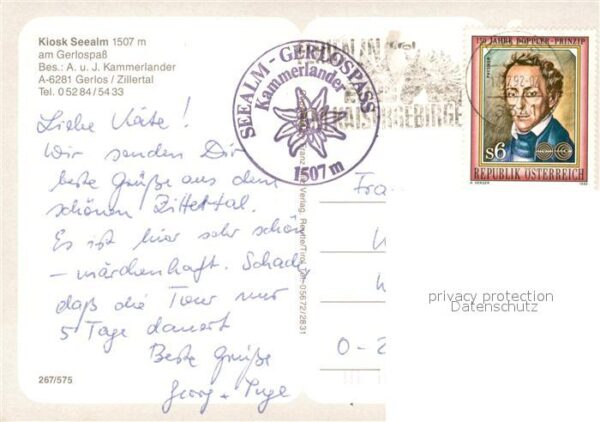 Kiosk Seealm 1507 m
am Gerlospaß
Bes.: A. u. J. Kammerlander
A-6281 Gerlos / Zillertal
Tel. 0 52 84 / 54 33
Liebe Käte!
Wir senden Dir
beste Grüße aus dem
schönen Zillertal.
Es ist hier sehr schön
– märchenhaft. Schade,
daß die Tour nur
5 Tage dauert
Beste Grüße
Georg + Inge
267/575
SEEALM - GERLOSPASS
Kammerlander
1507 m
Verlag, Reutte/Tirol, Tel. 05672/2831
150 JAHRE DOPPLER-PRINZIP
s6
REPUBLIK ÖSTERREICH
1992
Fra
O-2
privacy protection
Datenschutz